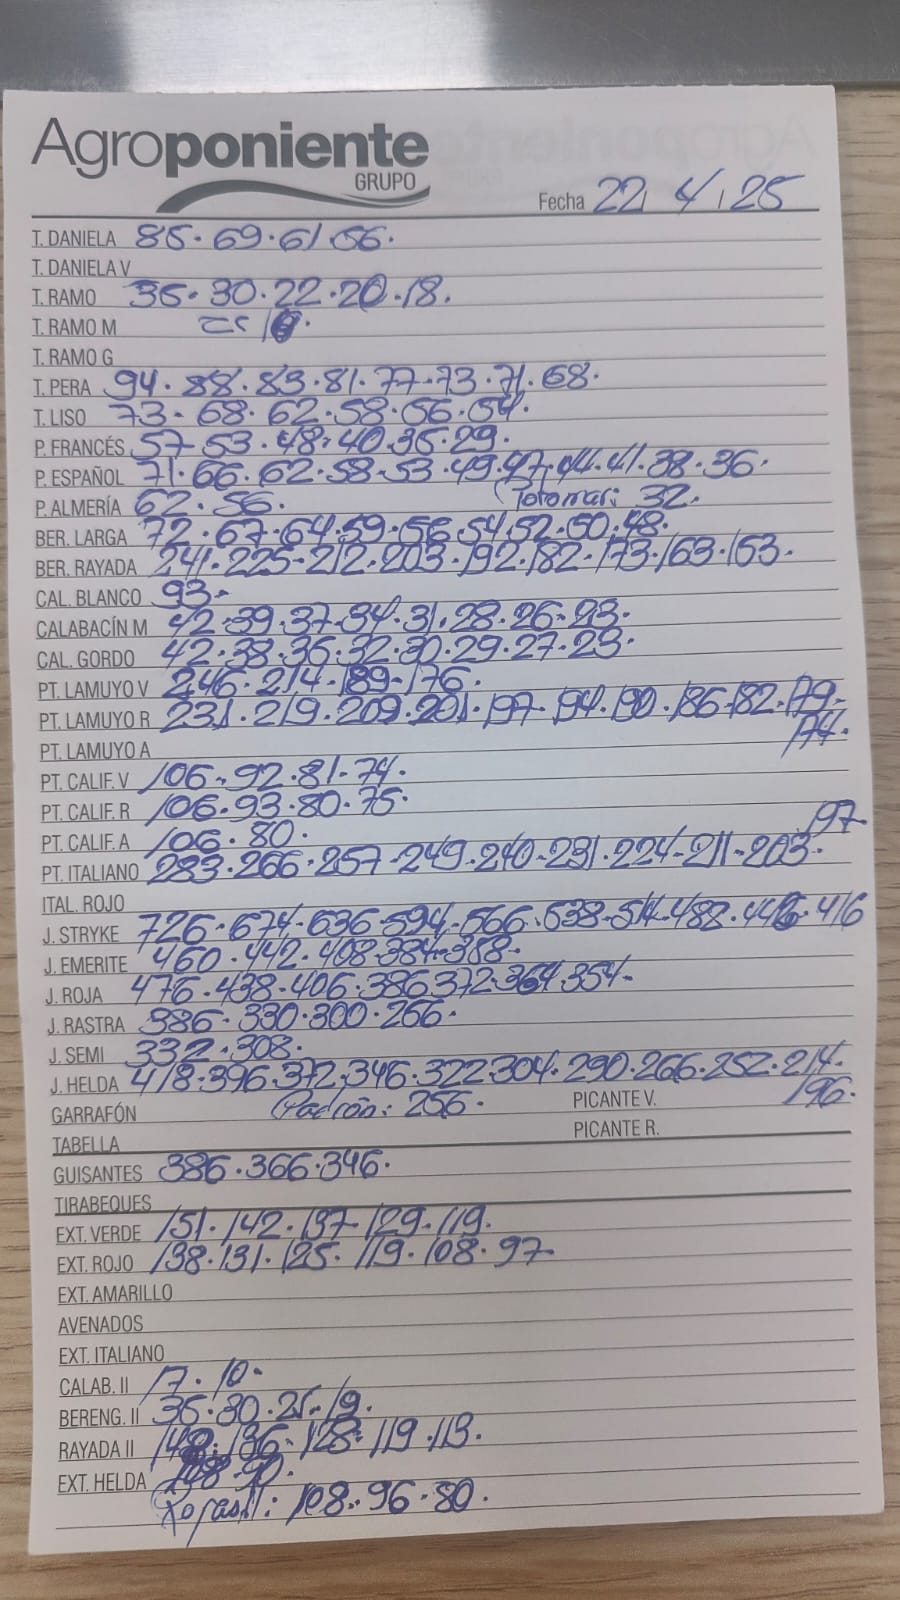 Agroponiente
GRUPO
Fecha 22/4/25
T. DANIELA 85·69·61·56·
T. DANIELA V
T. RAMO 35·30·22·20·18·
T. RAMO M
T. RAMO G
T. PERA 94·88·83·81·77·73·71·68·
T. LISO 73·68·62·58·56·54·
P. FRANCÉS 57·53·48·40·35·29·
P. ESPAÑOL 71·66·62·58·53·49·47·44·41·38·36·
P. ALMERÍA 62·56· 32·
BER. LARGA 72·67·64·59·56·54·52·50·48·
BER. RAYADA 241·225·212·203·192·182·173·163·153·
CAL. BLANCO 93·
CALABACÍN M 42·39·37·34·31·28·26·23·
CAL. GORDO 42·38·35·32·30·29·27·23·
PT. LAMUYO V 246·214·189·176·
PT. LAMUYO R 231·219·209·201·197·194·190·186·182·179·
174·
PT. LAMUYO A
PT. CALIF. V 106·92·81·74·
PT. CALIF. R 106·93·80·75·
PT. CALIF. A 106·80·
197
PT. ITALIANO 283·266·257·249·240·231·224·211·203·
ITAL. ROJO
J. STRYKE 726·674·636·594·566·538·514·482·446·416
J. EMERITE 460·442·408·384·388·
J. ROJA 476·438·406·386·372·364·354·
J. RASTRA 386·330·300·266·
J. SEMI 332·308·
J. HELDA 418·396·372·346·322·304·290·266·252·214·
196·
GARRAFÓN Padrón: 256· PICANTE V.
TABELLA PICANTE R.
GUISANTES 386·366·346·
TIRABEQUES
EXT. VERDE 151·142·137·129·119·
EXT. ROJO 138·131·125·119·108·97·
EXT. AMARILLO
AVENADOS
EXT. ITALIANO
CALAB. II 17·10·
BERENG. II 35·30·25·19·
RAYADA II 148·136·128·119·113·
EXT. HELDA
108·96·80·